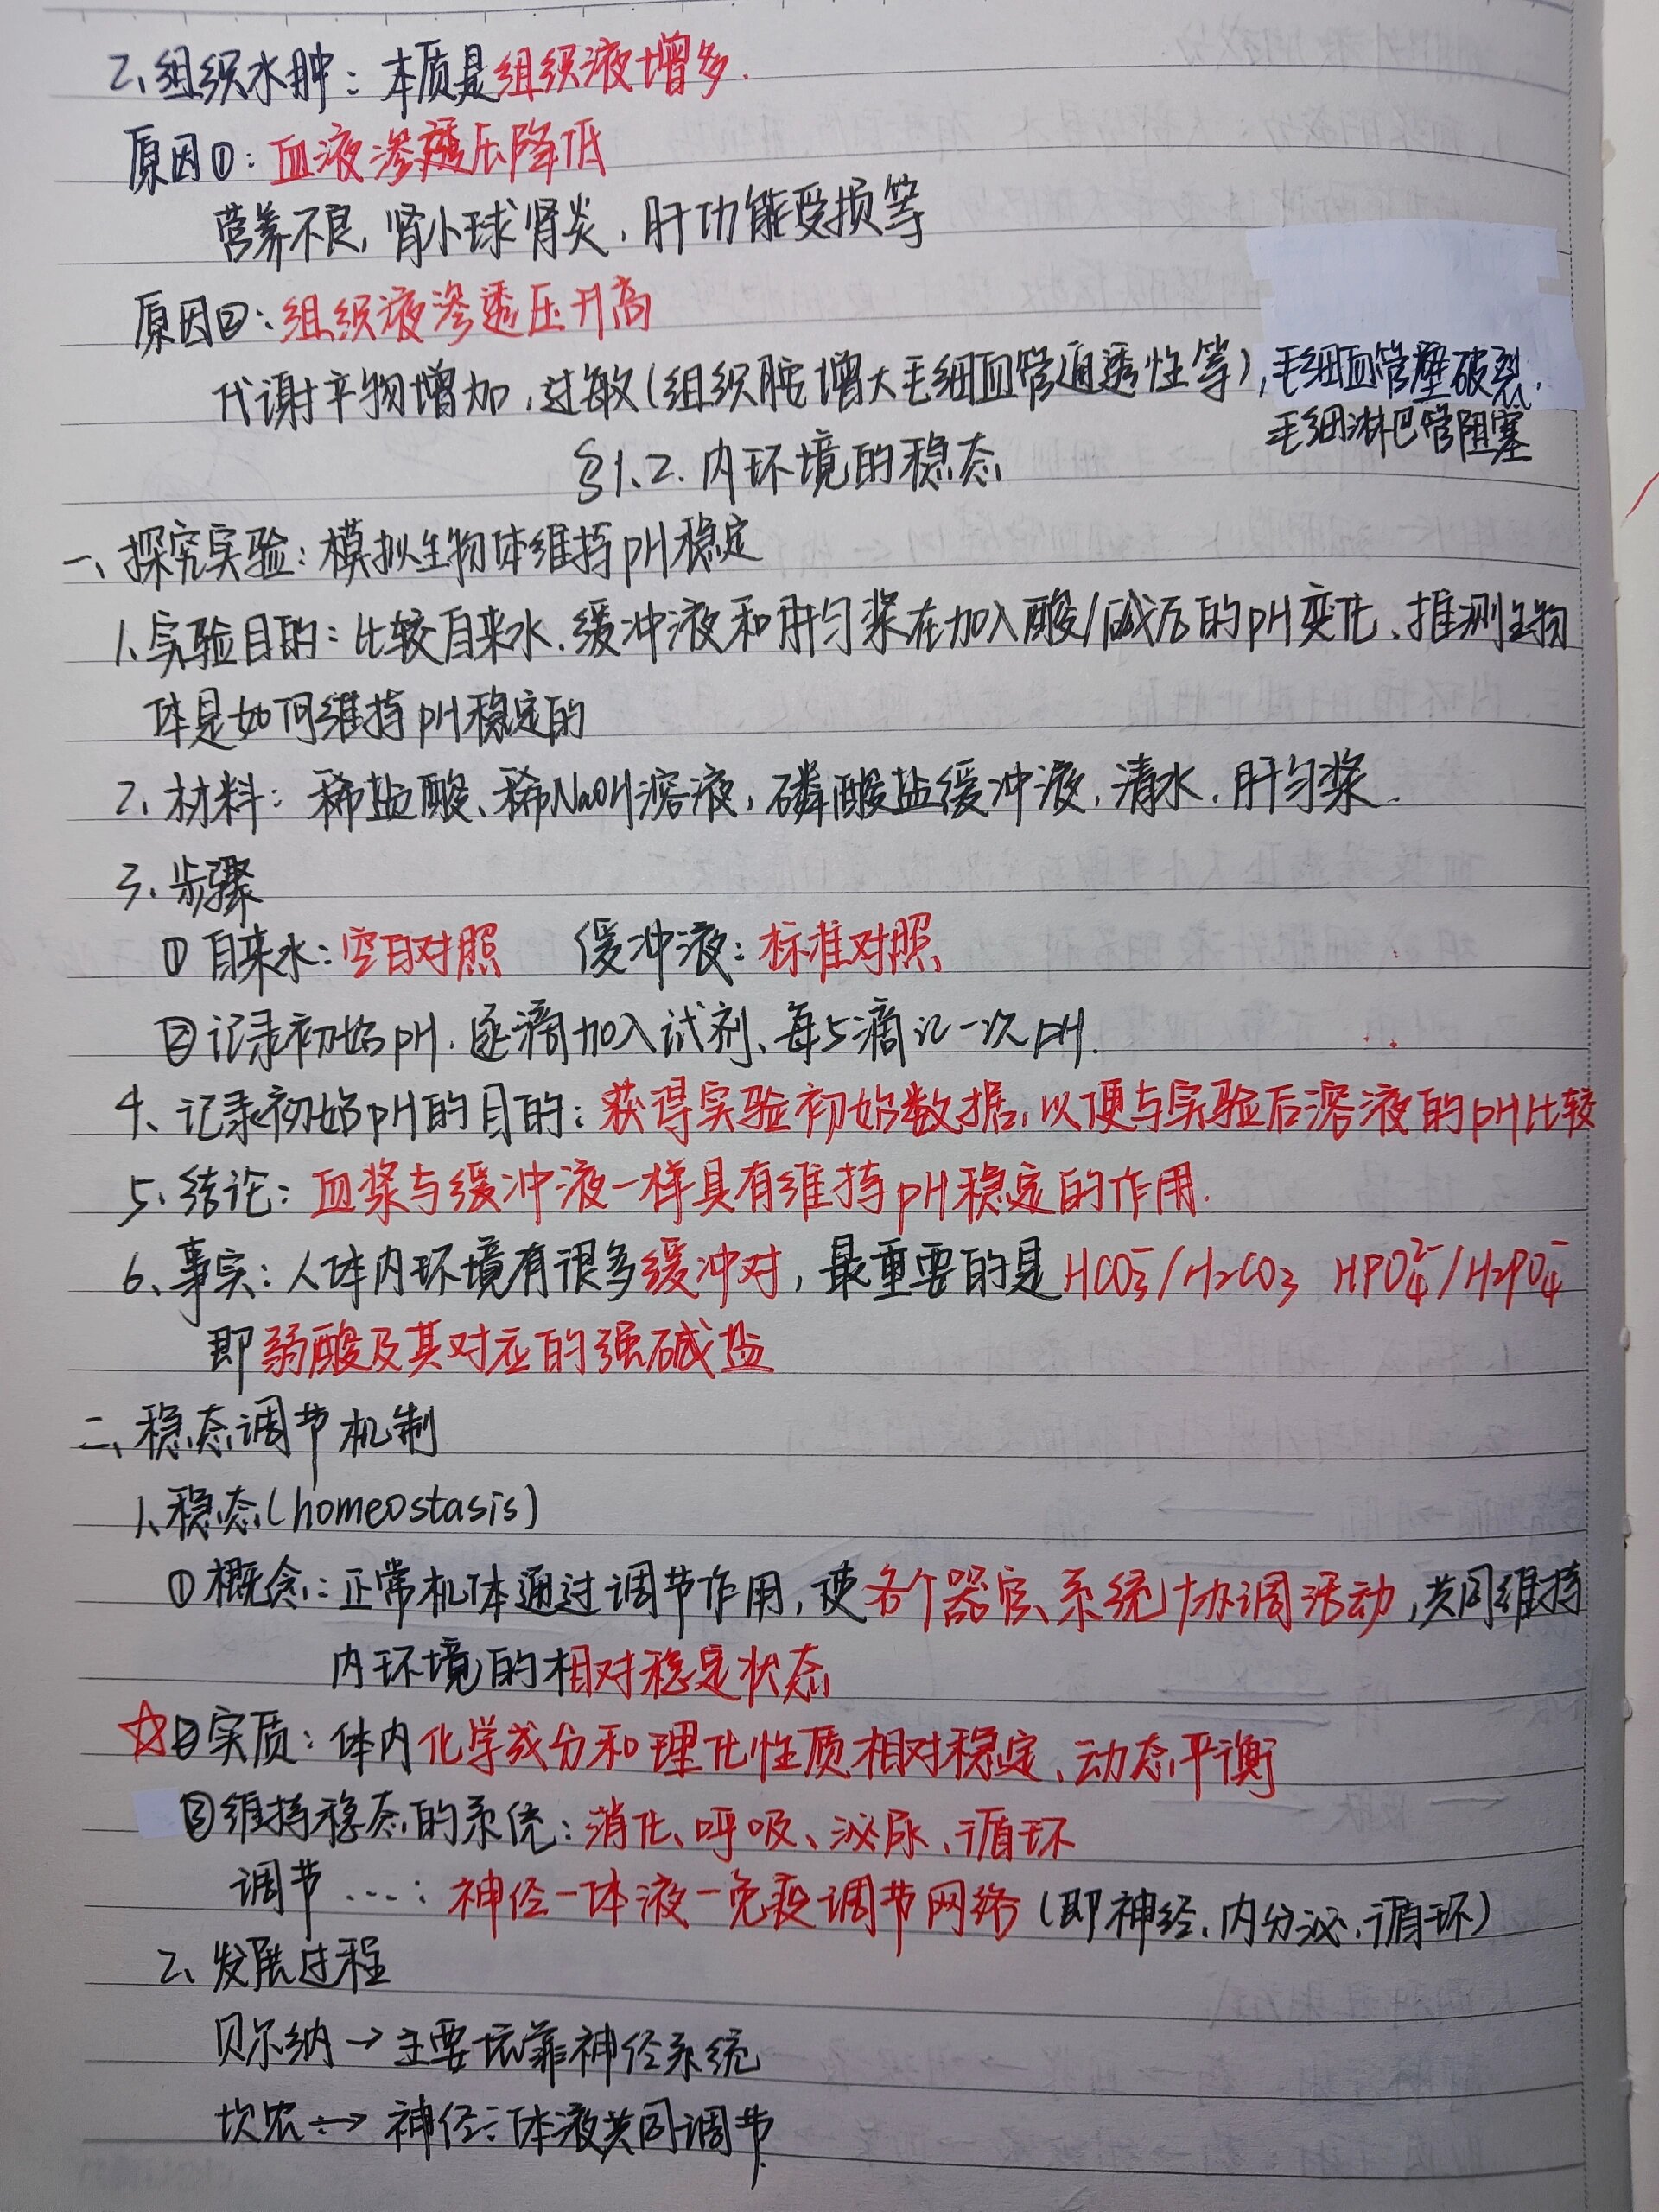 2、组织水肿：本质是组织液增多.
原因①：血液渗透压降低
营养不良，肾小球肾炎，肝功能受损等
原因②：组织液渗透压升高
代谢产物增加，过敏(组织胺增大毛细血管通透性等)，毛细血管壁破裂，
毛细淋巴管阻塞
§1.2. 内环境的稳态
一、探究实验：模拟生物体维持pH稳定
1、实验目的：比较自来水、缓冲液和肝匀浆在加入酸/碱后的pH变化、推测生物
体是如何维持pH稳定的
2、材料：稀盐酸、稀NaOH溶液，磷酸盐缓冲液，清水，肝匀浆.
3、步骤
①自来水：空白对照 缓冲液：标准对照
②记录初始pH. 逐滴加入试剂、每5滴记一次pH.
4、记录初始pH的目的：获得实验初始数据，以便与实验后溶液的pH比较
5、结论：血浆与缓冲液一样具有维持pH稳定的作用.
6、事实：人体内环境有很多缓冲对，最重要的是HCO₃⁻/H₂CO₃ HPO₄²⁻/H₂PO₄⁻
即弱酸及其对应的强碱盐
二、稳态调节机制
1、稳态(homeostasis)
①概念：正常机体通过调节作用，使各个器官、系统协调活动，共同维持
内环境的相对稳定状态
☆②实质：体内化学成分和理化性质相对稳定、动态平衡
③维持稳态的系统：消化、呼吸、泌尿、循环
调节...：神经－体液－免疫调节网络(即神经，内分泌，循环)
2、发展过程
贝尔纳→主要依靠神经系统
坎农→神经体液共同调节